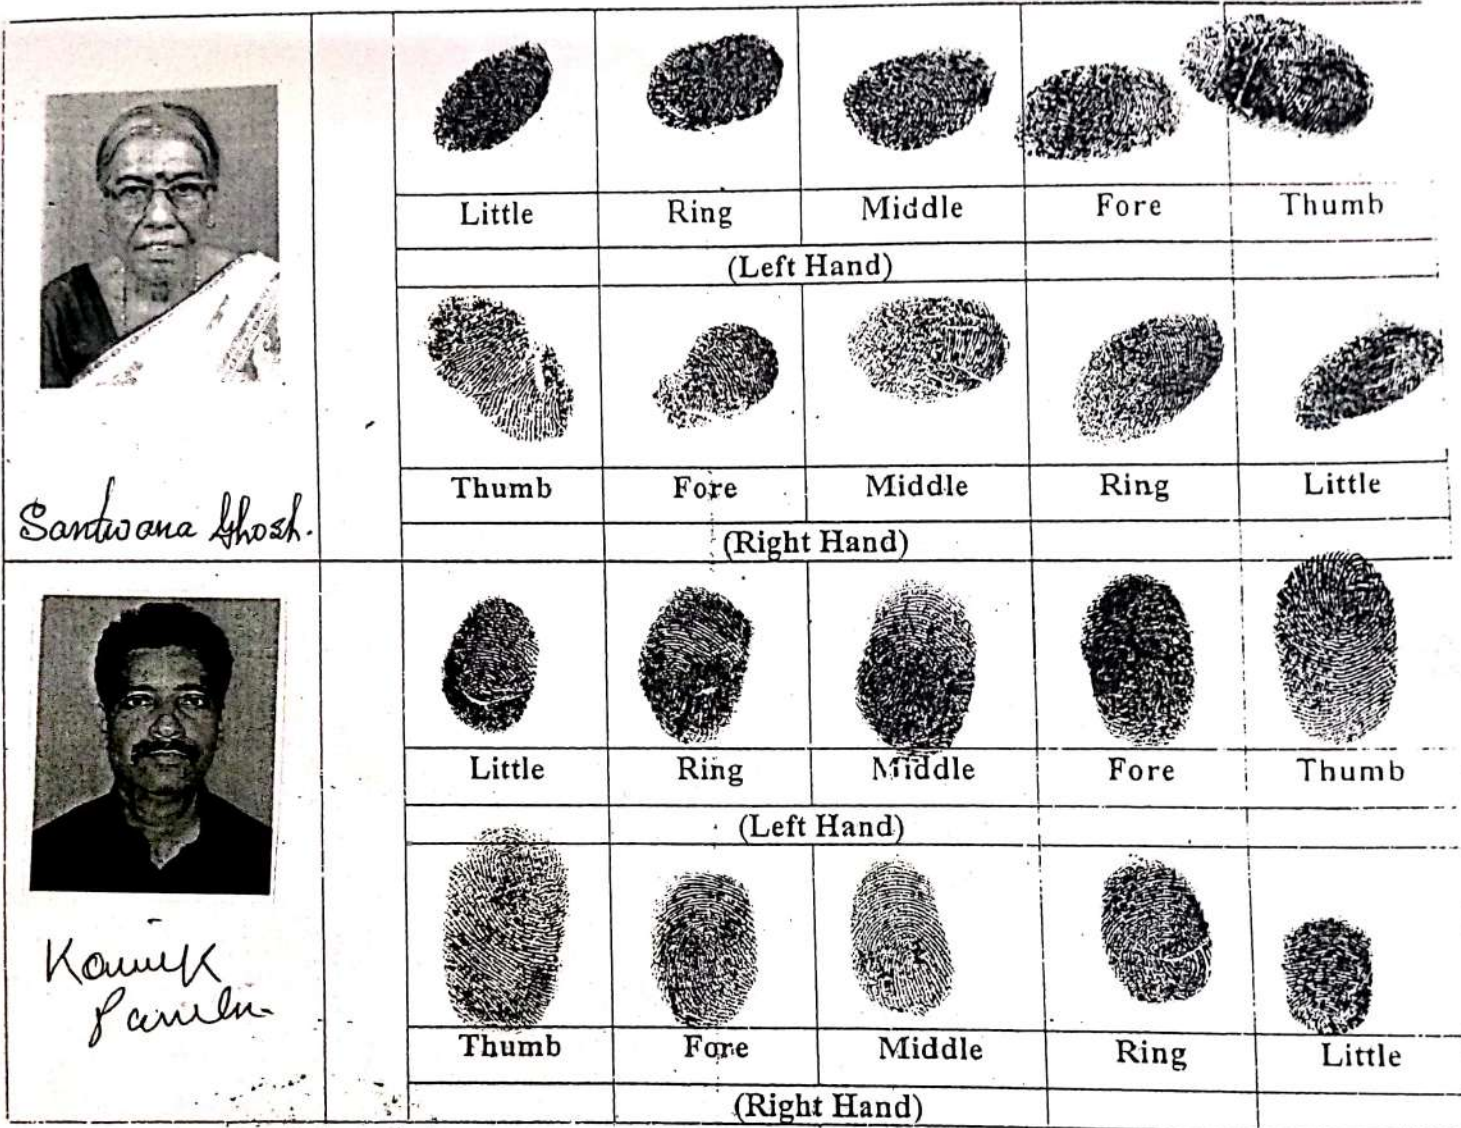 Little Ring Middle Fore Thumb
(Left Hand)
Thumb Fore Middle Ring Little
(Right Hand)
Santwana Ghosh.
Little Ring Middle Fore Thumb
(Left Hand)
Thumb Fore Middle Ring Little
(Right Hand)